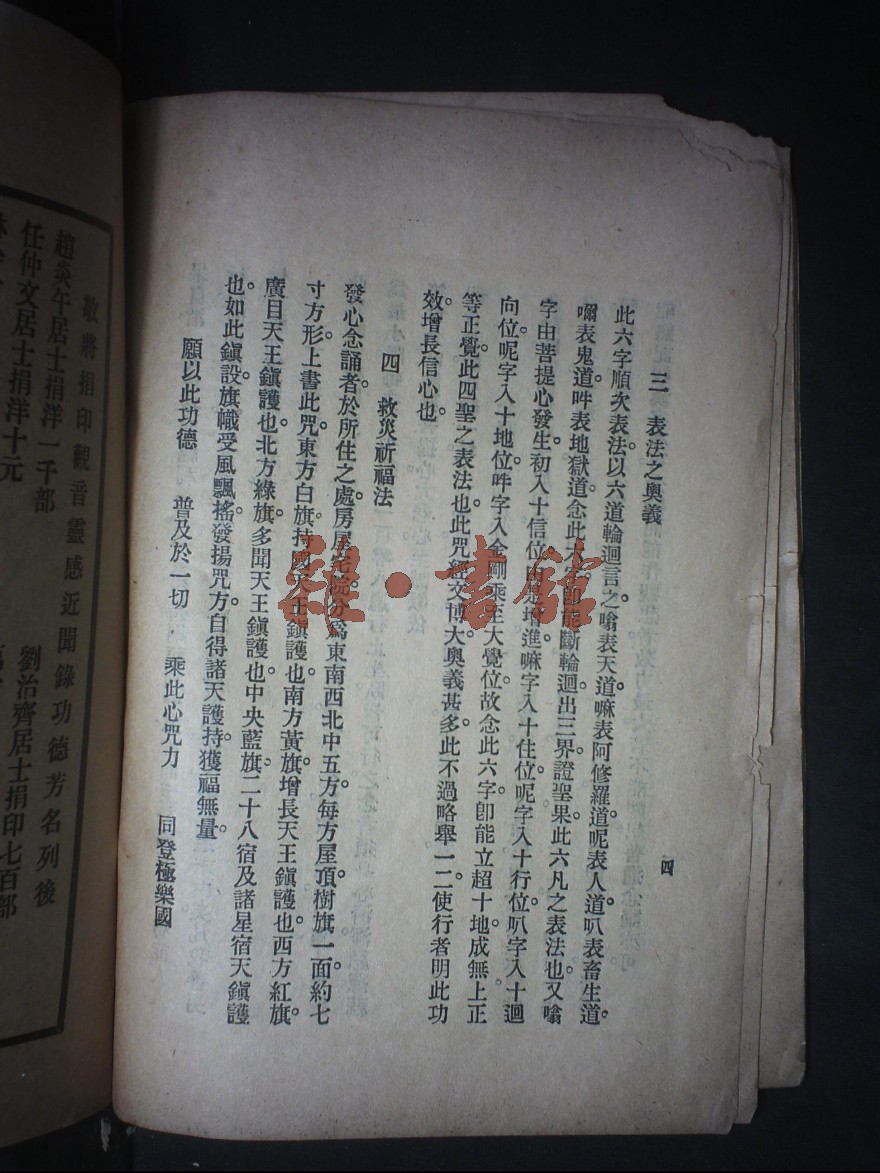 三　表法之奧義
此六字順次表法以六道輪迴言之嗡表天道。嘛表阿修羅道。呢表人道。叭表畜生道。
嚩表鬼道。吽表地獄道念此六字。卽能斷輪迴出三界證聖果此六凡之表法也。又嗡
字由菩提心發生初入十信位由是增進嘛字入十住位。呢字入十行位。叭字入十迴
向位。呢字入十地位。吽字入金剛乘至大覺位故念此六字。卽能立超十地。成無上正
等正覺此四聖之表法也此咒經文博大奧義甚多此不過略舉一二。使行者明此功
效。增長信心也。
四　救災祈福法
發心念誦者於所住之處。房屋宅院分爲東南西北中五方。每方屋頂。樹旗一面。約七
寸方形上書此咒。東方白旗。持國天王鎭護也。南方黃旗。增長天王鎭護也。西方紅旗。
廣目天王鎭護也。北方綠旗。多聞天王鎭護也。中央藍旗。二十八宿及諸星宿天鎭護
也。如此鎭設旗幟。受風飄搖。發揚咒力。自得諸天護持。獲福無量。
願以此功德　普及於一切　乘此心咒力　同登極樂國
四
敬將捐印觀音靈感近聞錄功德芳名列後
趙炎午居士捐洋一千部
劉治齊居士捐印七百部
任仲文居士捐洋十元
緑・書館